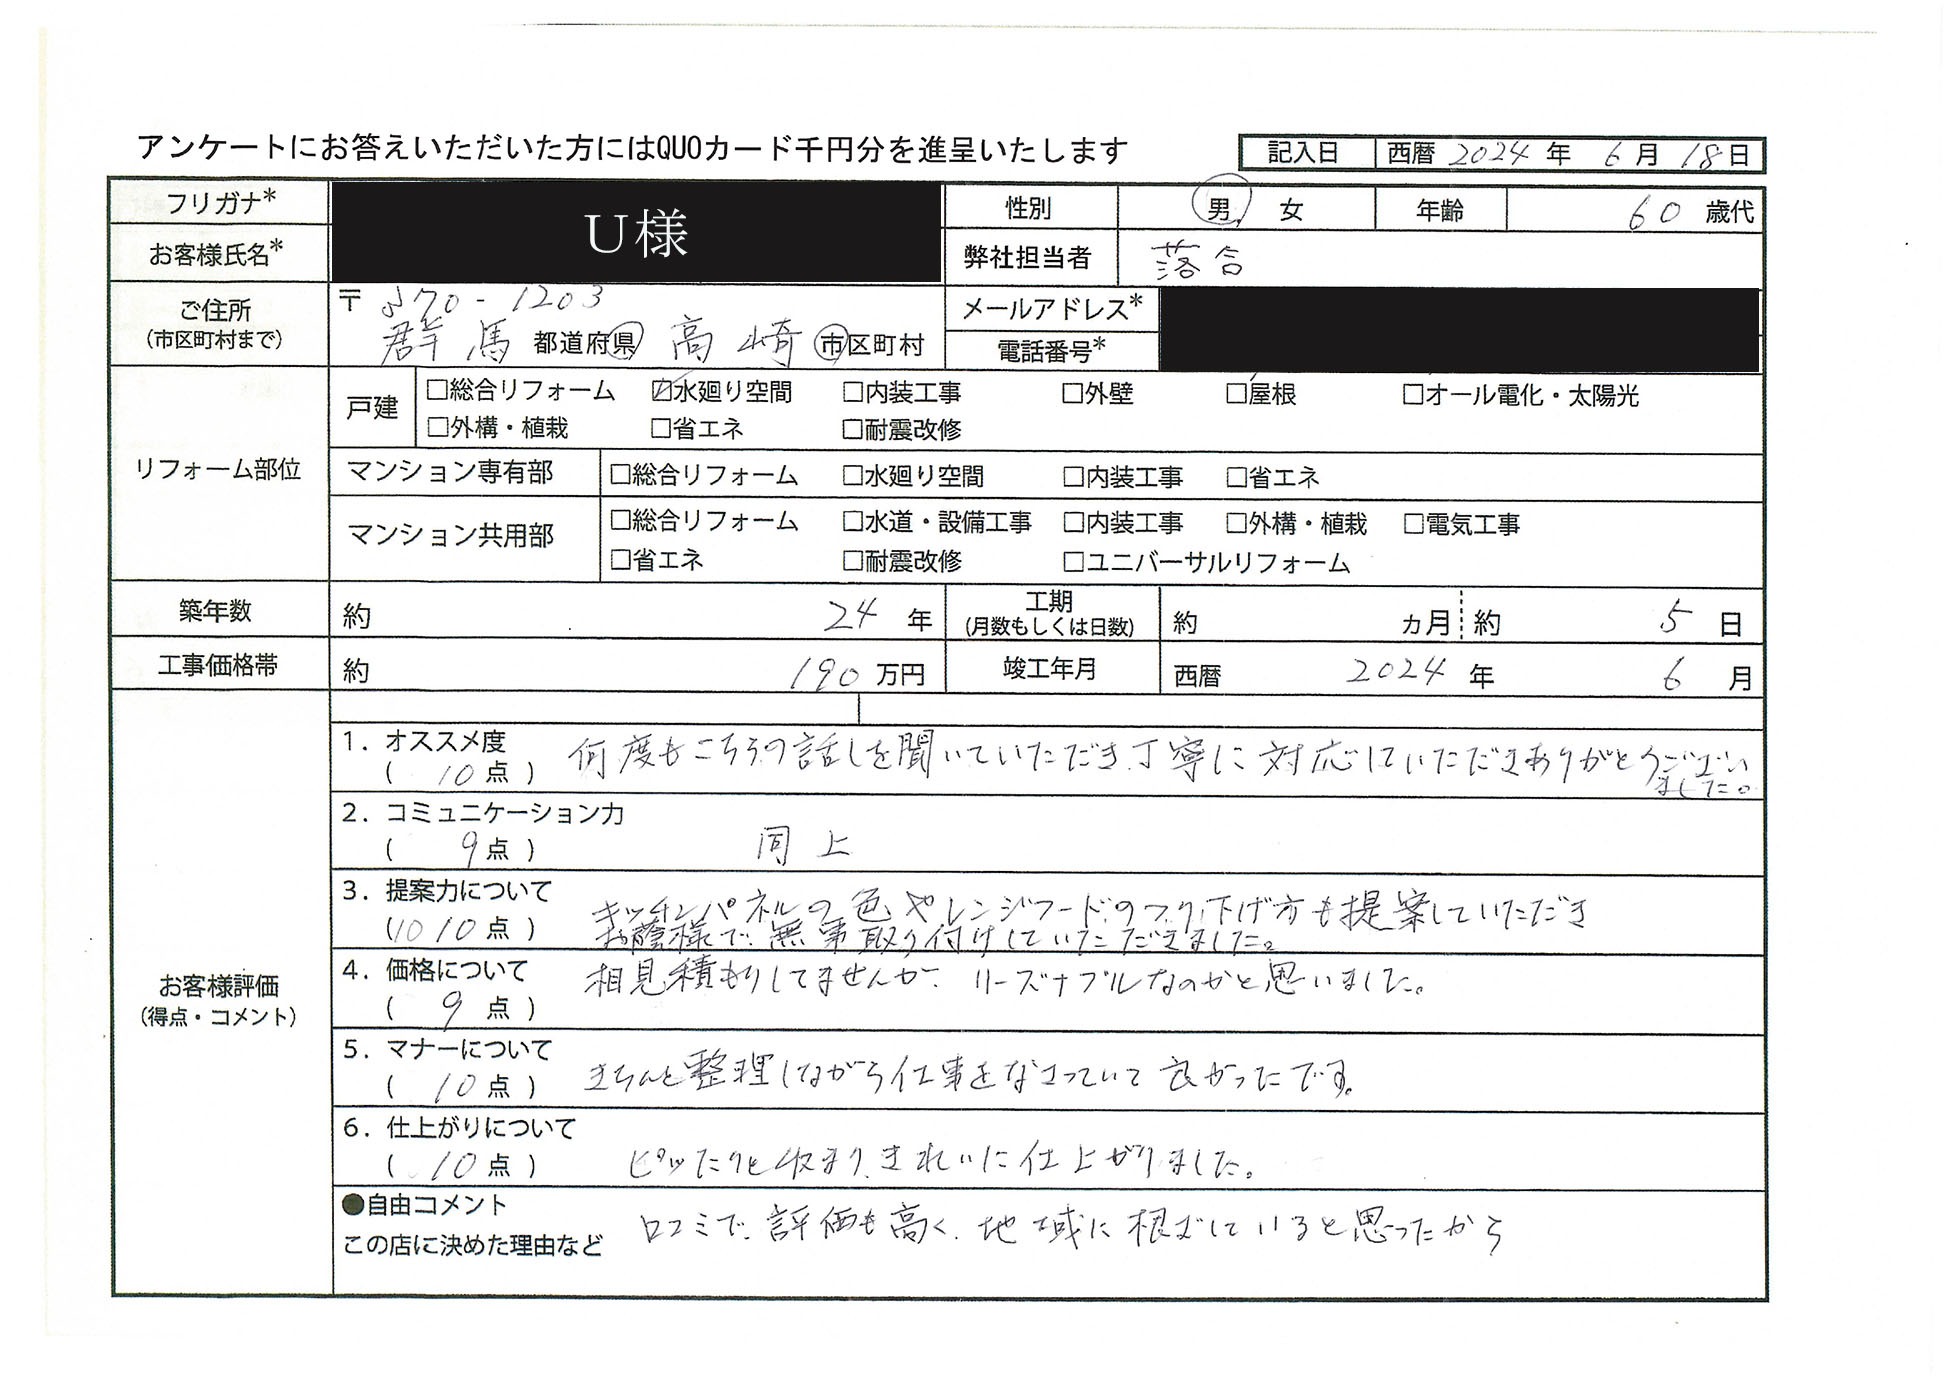 アンケートにお答えいただいた方にはQUOカード千円分を進呈いたします
記入日 西暦 2024 年 6 月 18 日
フリガナ*
U様
性別 男 女 年齢 60 歳代
お客様氏名*
弊社担当者 落合
ご住所
(市区町村まで)
〒 370-1203
群馬 都道府県 高崎 市区町村
メールアドレス*
電話番号*
リフォーム部位
戸建
□総合リフォーム ☑水廻り空間 □内装工事 □外壁 □屋根 □オール電化・太陽光
□外構・植栽 □省エネ □耐震改修
マンション専有部 □総合リフォーム □水廻り空間 □内装工事 □省エネ
マンション共用部
□総合リフォーム □水道・設備工事 □内装工事 □外構・植栽 □電気工事
□省エネ □耐震改修 □ユニバーサルリフォーム
築年数 約 24 年
工期
(月数もしくは日数)
約 ヵ月 約 5 日
工事価格帯 約 190 万円 竣工年月 西暦 2024 年 6 月
お客様評価
(得点・コメント)
1. オススメ度
( 10 点 )
何度もこちらの話しを聞いていただき丁寧に対応していただきありがとうござい
ました。
2. コミュニケーション力
( 9 点 ) 同上
3. 提案力について
( 10 10 点 )
キッチンパネルの色やレンジフードのつり下げ方も提案していただき
お蔭様で、無事取り付けしていただきました。
4. 価格について
( 9 点 )
相見積もりしてませんが、リーズナブルなのかと思いました。
5. マナーについて
( 10 点 )
きちんと整理しながら仕事をなさっていて良かったです。
6. 仕上がりについて
( 10 点 )
ピッたりと収まり、きれいに仕上がりました。
●自由コメント
この店に決めた理由など
口コミで、評価も高く、地域に根ざしていると思ったから